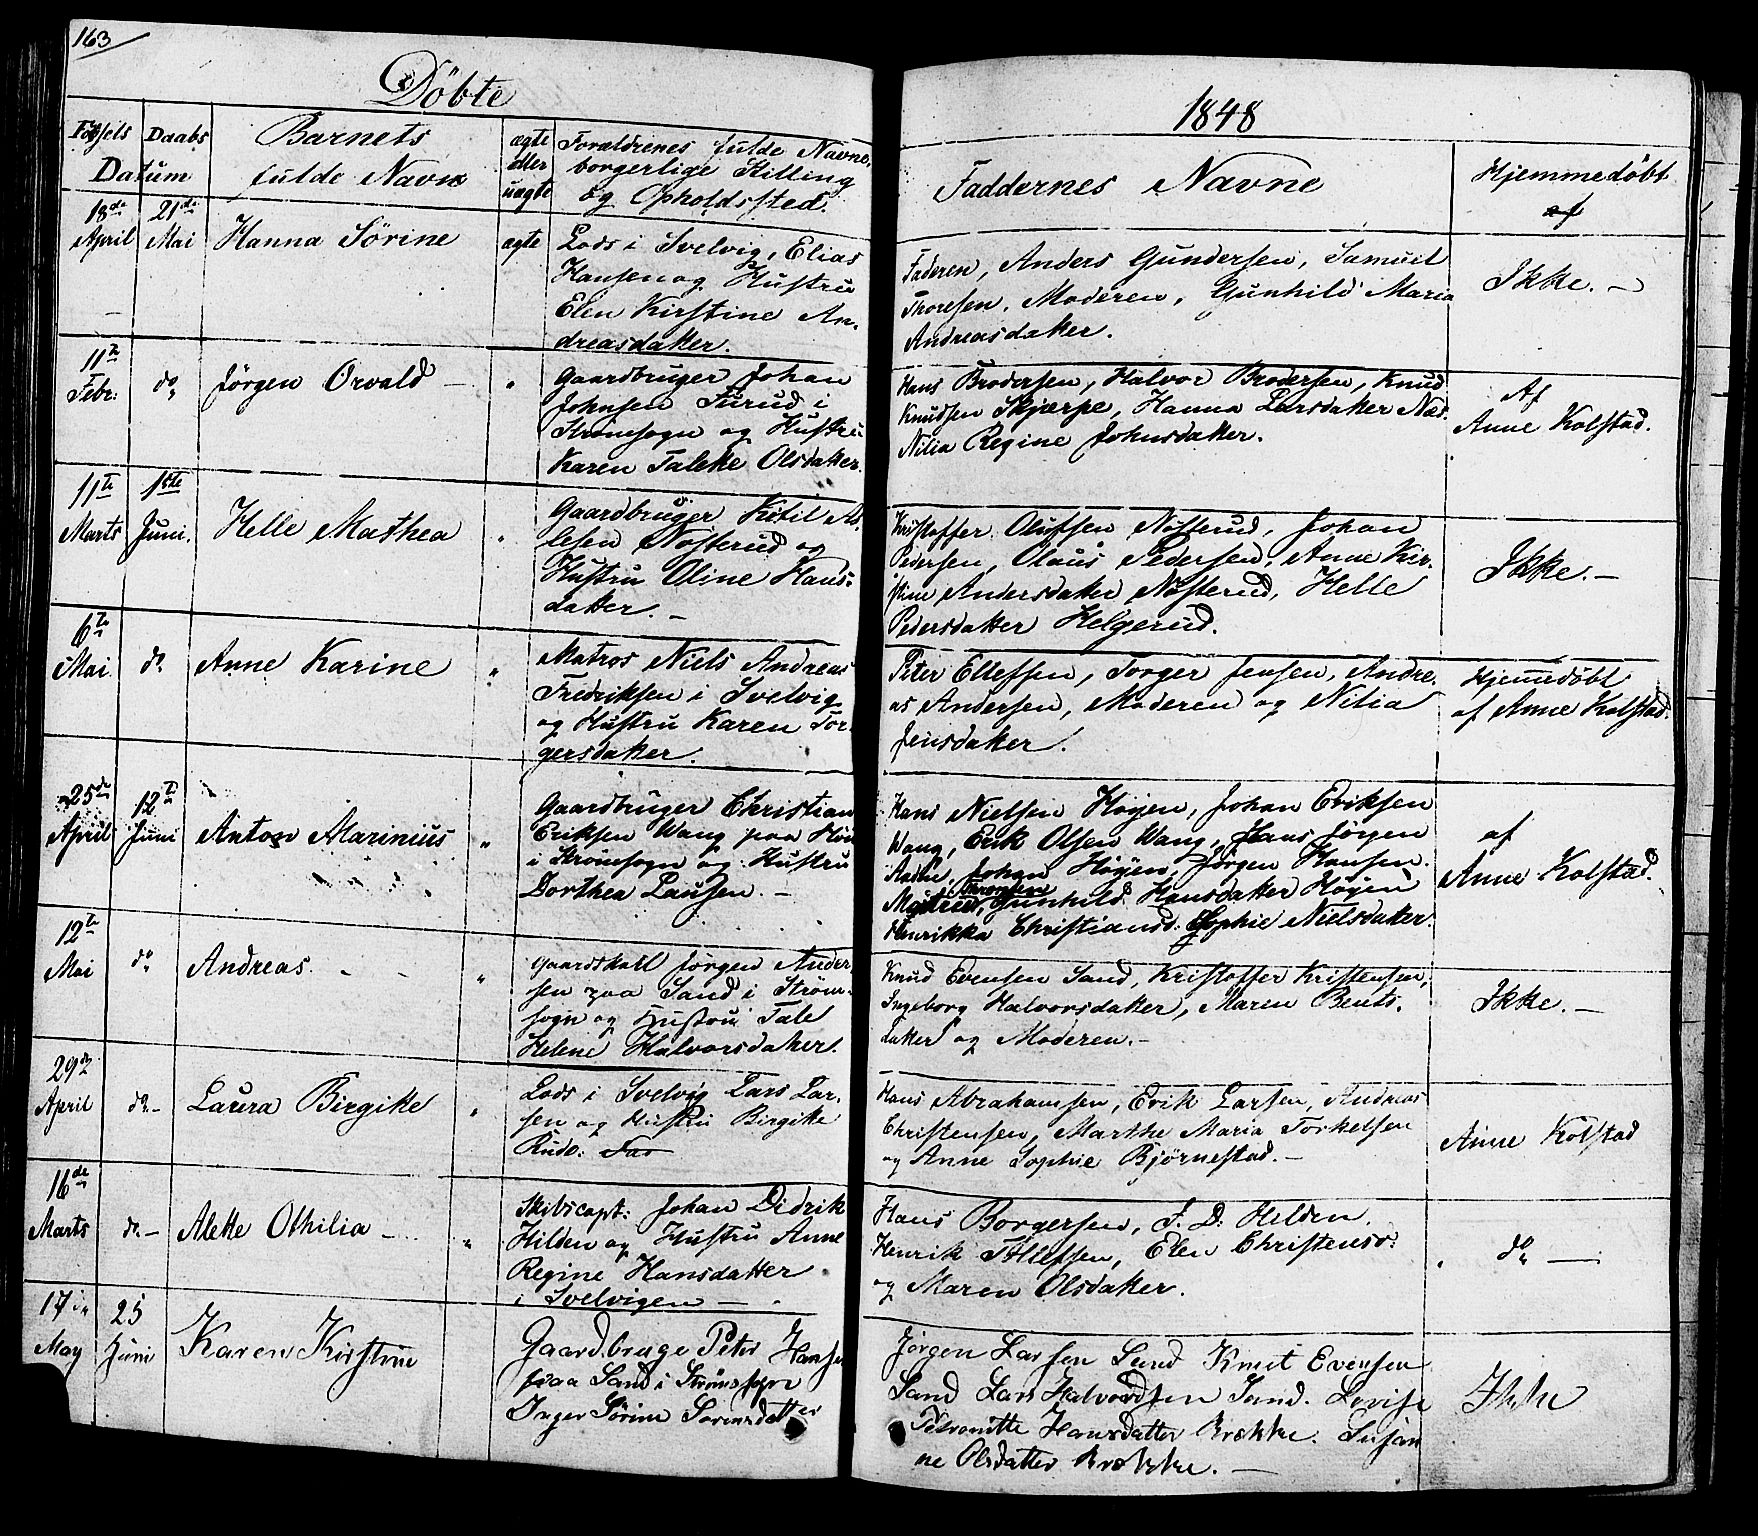 163
Döbte
1848
Fødsels Daabs
Datum
Barnets
fulde Navn
ægte
eller
uægte
Forældrenes fulde Navne,
borgerlige Stilling
og Opholdssted.
Faddernes Navne
Hjemmedöbt
af
18de
April
21de
Mai
Hanna Sörine
ægte
Lods i Svelvig, Elias
Hansen og Hustru
Elen Kirstine An-
dreasdatter.
Faderen, Anders Gundersen, Samuel
Thoresen, Moderen, Gunhild Maria
Andreasdatter.
Ikke. —
11te
Febr:
do
Jörgen Orvald —
"
Gaardbruger Johan
Johnsen Turud i
Strömsogn og Hustru
Karen Taleke Olsdatter
Hans Brodersen, Halvor Brodersen, Knud
Knudsen Skjærpe, Hanna Larsdatter Næs.
Nilia Regine Johnsdatter.
Af
Anne Kolstad.
11te
Marts
1ste
Juni.
Helle Mathea
"
Gaardbruger Kittil At-
lesen Nösterud og
Hustru Oline Hans-
datter. —
Kristoffer Olufsen Nösterud, Johan
Pedersen, Olaus Pedersen, Anne Kir-
stine Andersdatter Nösterud, Helle
Pedersdatter Helgerud.
Ikke. —
6te
Mai
do
Anne Karine
"
Matros Niels Andreas
Fredriksen i Svelvig
og Hustru Karen Tor-
gersdatter.
Peter Ellefsen, Torger Jensen, Andre-
as Andersen, Moderen og Nilia
Jensdatter.
Hjemmedöbt
af Anne Kolstad.
25de
April
12te
Juni
Anton Marinius
"
Gaardbruger Christian
Eriksen Wang paa
i Strömsogn og Hustru
Dorthea Lausen. —
Hans Nielsen Höyen, Johan Eriksen
Wang, Erik Olsen Wang, Hans Jörgen
Johan Höyen, Jörgen Hansen
Gunhild Hansdatter Höyen
Henrikka Christiansd. Sophie Nielsdatter.
af
Anne Kolstad.
12te
Mai
do
Andreas.
"
Gaardskarl Jörgen Ander-
sen paa Sand i Ström-
sogn og Hustru Tale
Helene Halvorsdatter.
Knud Evensen Sand, Kristoffer Kristensen,
Ingeborg Halvorsdatter, Maren Bents-
datter og Moderen. —
Ikke. —
29de
April
do —
Laura Birgitte
"
Lods i Svelvig Lars Lar-
sen og Hustru Birgitte
Rud.
Hans Abrahamsen, Erik Larsen, Andreas
Christensen, Marthe Maria Torkelsen
og Anne Sophie Björnestad. —
Anne Kolstad
16de
Marts
do —
Alette Othilia —
"
Skibscapt: Johan Didrik
Hilden og Hustru Anne
Regine Hansdatter
i Svelvigen —
Hans Borgersen, J. D. Hilden,
Henrik Ellefsen, Elen Christensd:
og Maren Olsdatter.
do —
17de
May
25
Juni
Karen Kirstine
Gaardbruge Peter Hansen
paa Sand i Strømssogn
Inger Sørine Sørensdatter
Jørgen Larsen Sand Knut Evensen
Sand Lars Halvordsen Sand. Lovise
Petronille Hansdatter Krokke. Susan
ne Olsdatter Krokke. —
Ikke